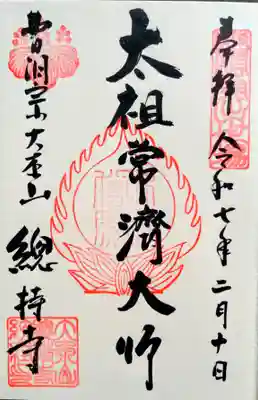 奉拝 令和七年二月十日
太祖常濟大師
曹洞宗大本山 總持寺